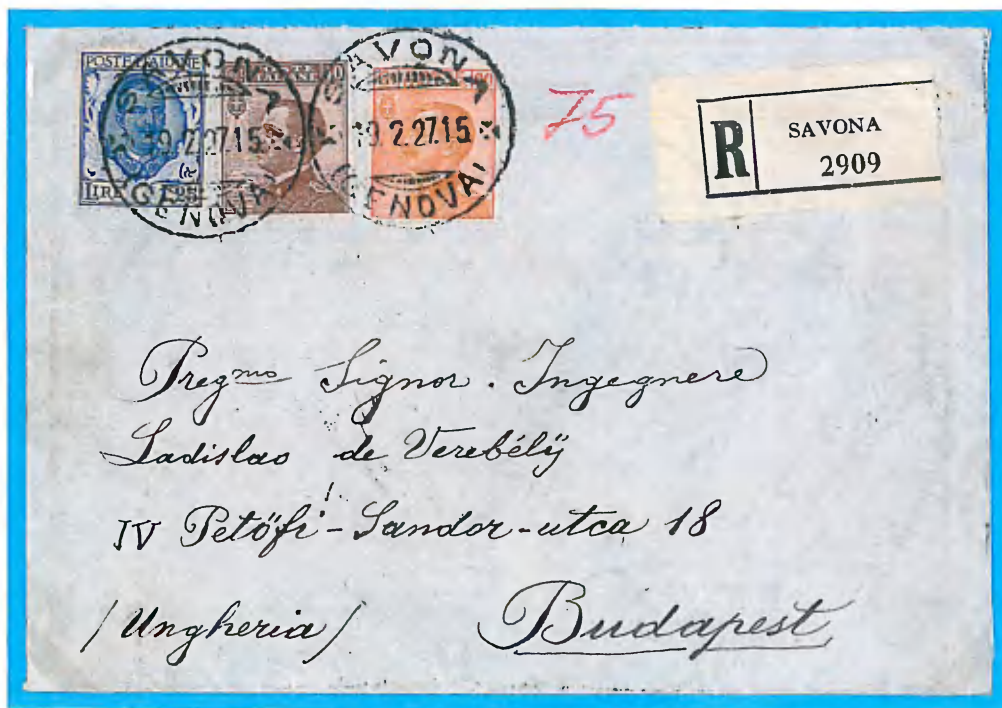 POSTE ITALIANE
LIRE 1,25
SAVONA
19.2.27.15
(GENOVA)
SAVONA
19.2.27.15
(GENOVA)
75
R
SAVONA
2909
Pregmo Signor. Ingegnere
Ladislao de Verebélÿ
IV Petőfi-Sandor-utca 18
/Ungheria/
Budapest